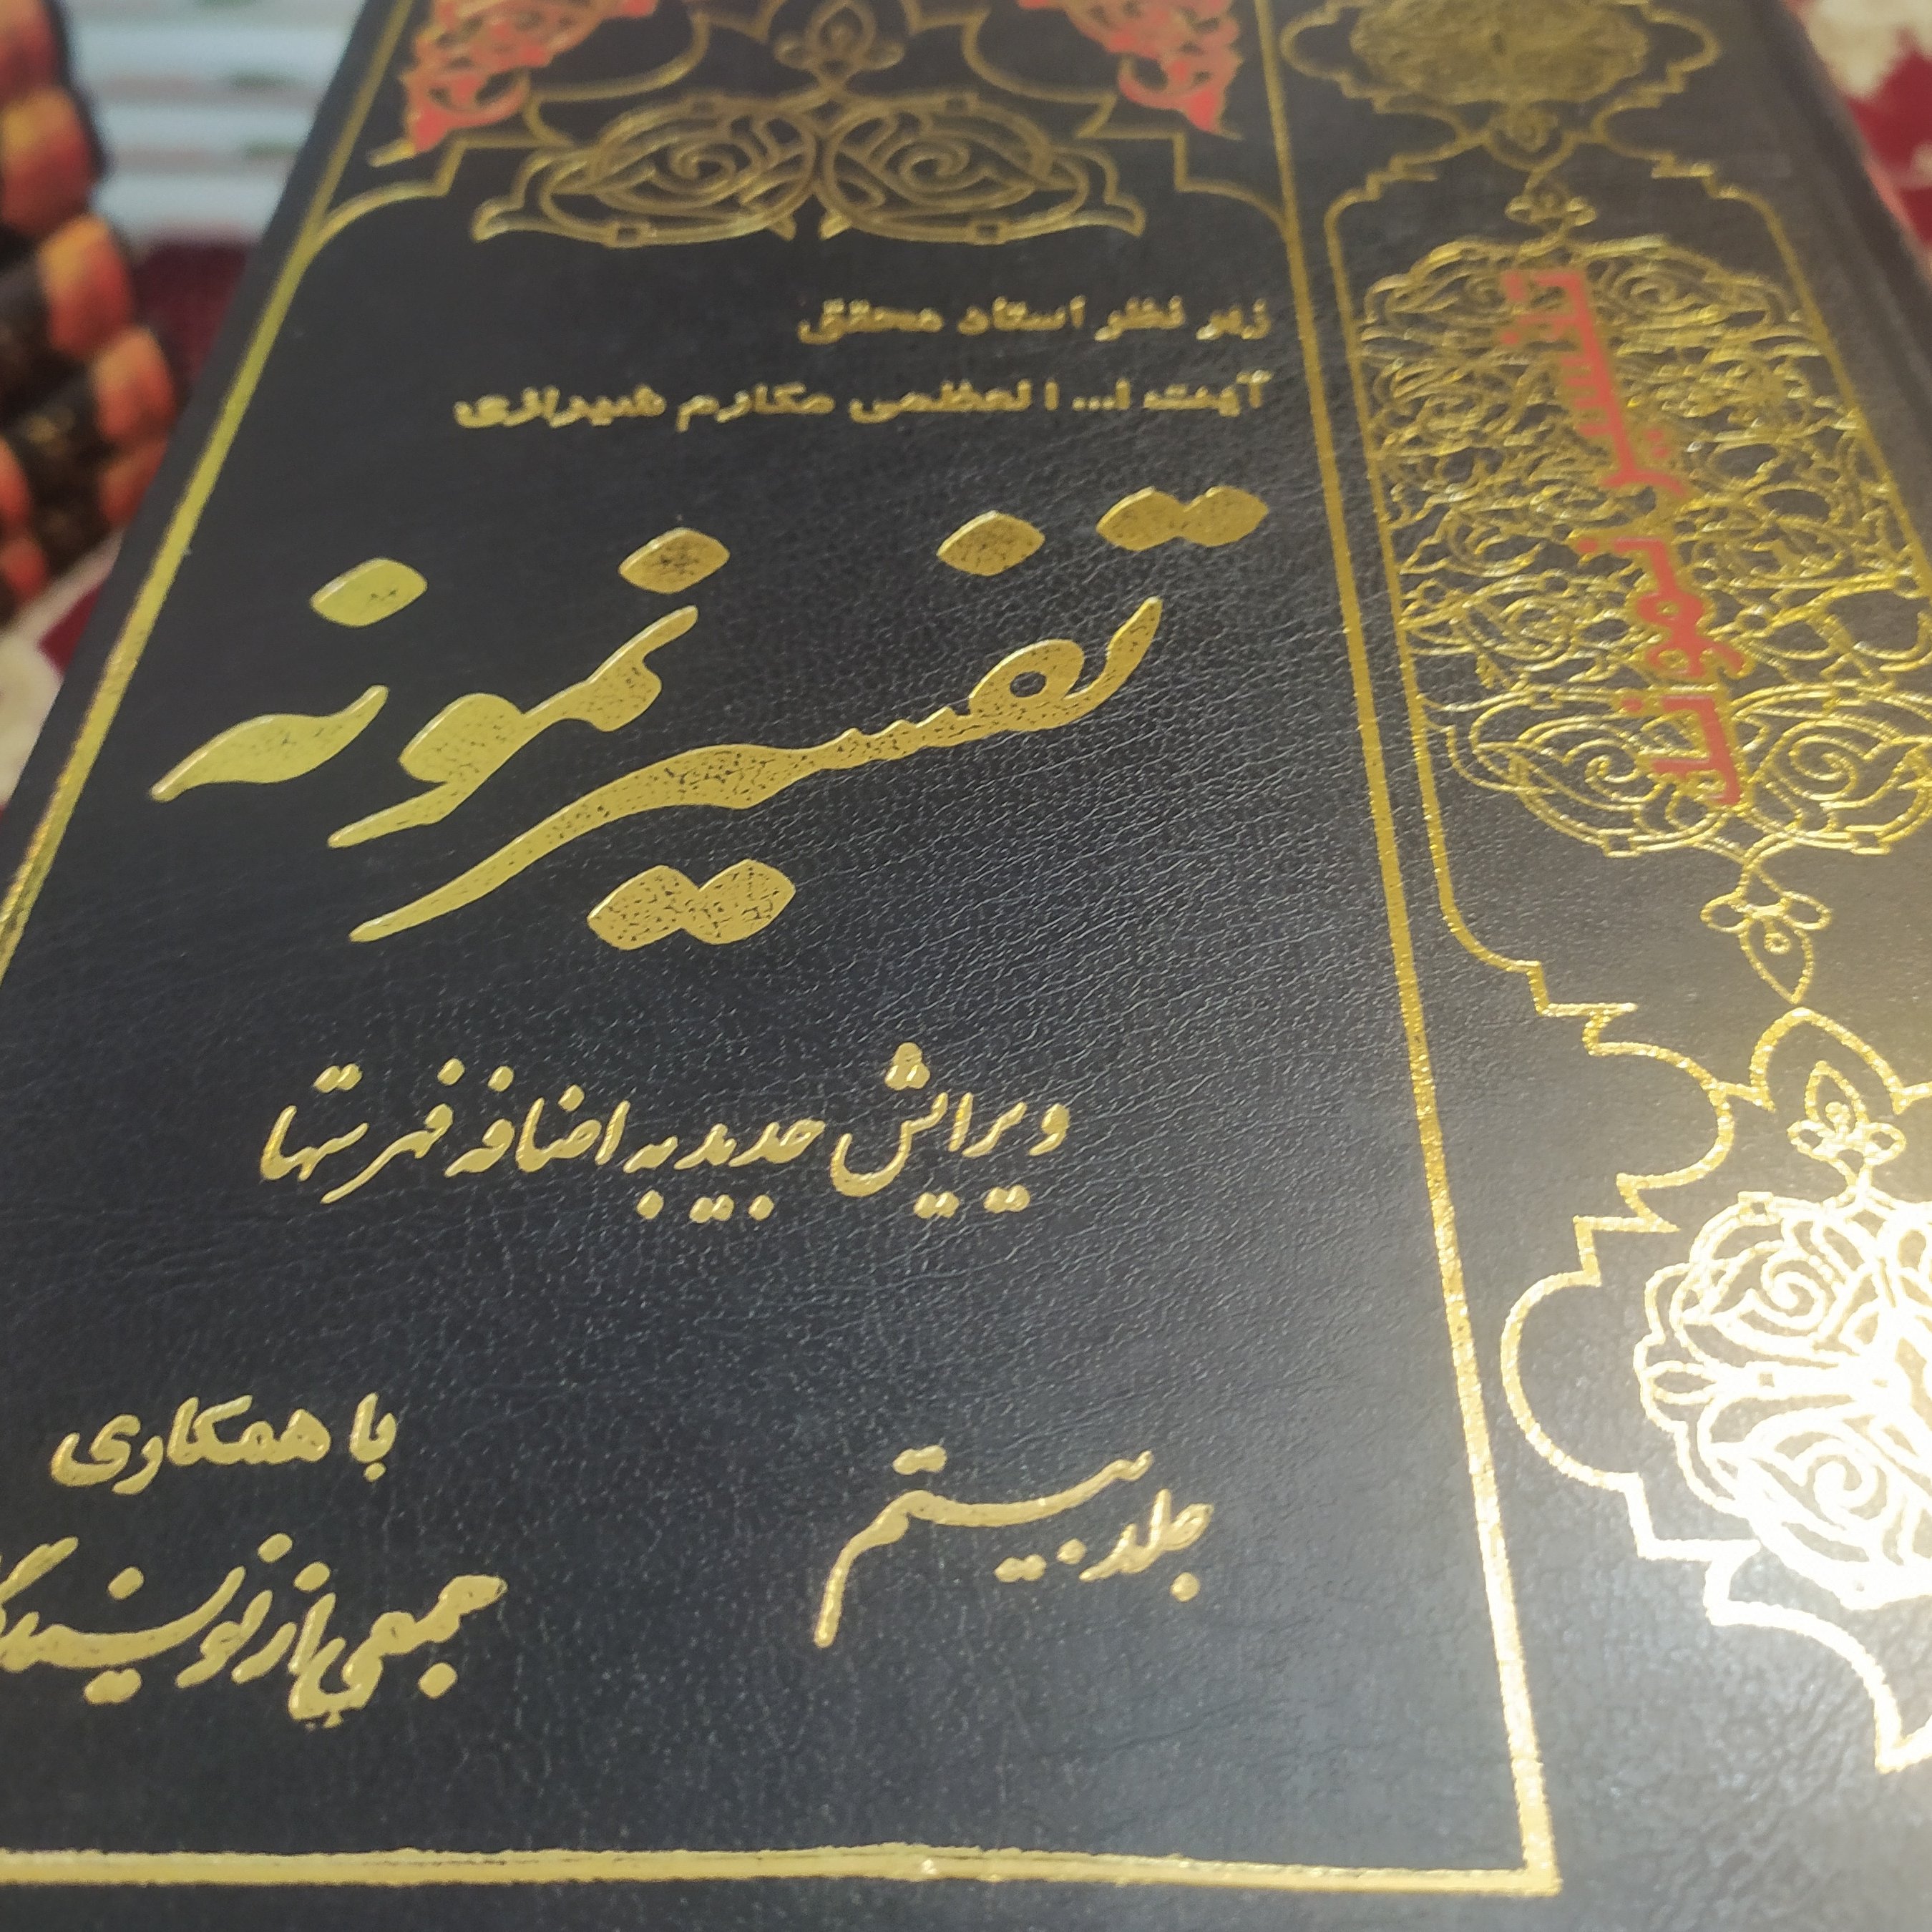 زیر نظر استاد محقق
آیت ا... العظمی مکارم شیرازی
تفسیر نمونه
ویرایش جدید به اضافه فهرستها
جلد بیستم
با همکاری
جمعی از
تفسیر نمونه